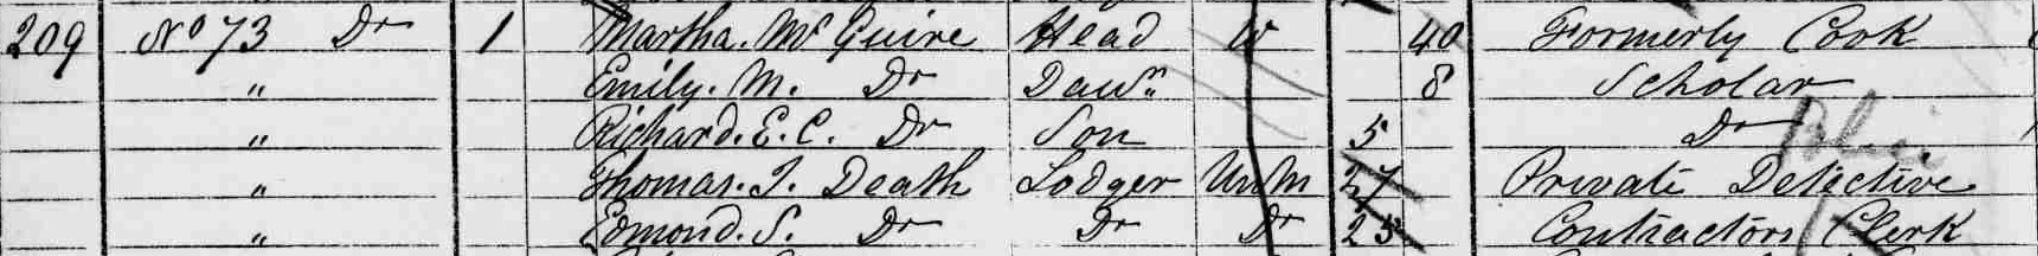 209 No 73 Do 1 Martha. Mc Guire Head W 40 Formerly Cook
" Emily. M. Do Daur 8 Scholar
" Richard. E. C. Do Son 5 Do
" Thomas. J. Death Lodger UnM 27 Private Detective
" Edmond. S. Do Do Do 25 Contractors Clerk